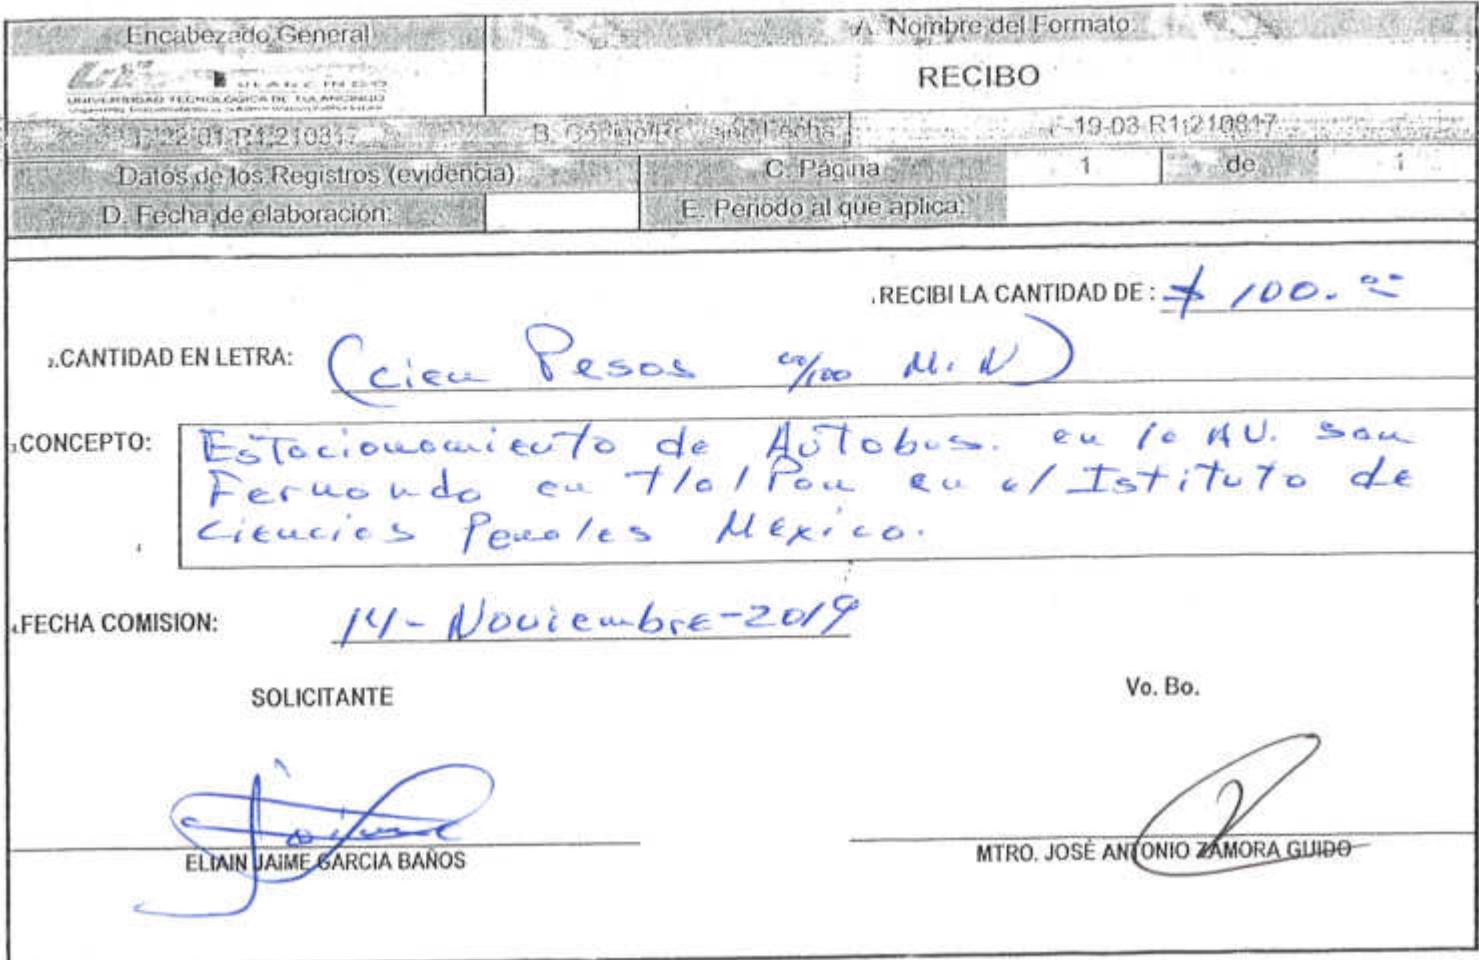 Encabezado General
A. Nombre del Formato
RECIBO
UNIVERSIDAD TECNOLOGICA DE TULANCINGO
-22-01-R1;210817
-19-03-R1;210817
Datos de los Registros (evidencia)
C. Página
1
de
1
D. Fecha de elaboración:
E. Periodo al que aplica:
1.RECIBI LA CANTIDAD DE : $ 100.00
2.CANTIDAD EN LETRA: (cien Pesos 00/100 M.N)
3.CONCEPTO: Estacionamiento de Autobus. en la AV. San
Fernando en Tlalpan en el Istituto de
Ciencias Penales Mexico.
4.FECHA COMISION: 14-Noviembre-2019
SOLICITANTE
Vo. Bo.
ELIAIN JAIME GARCIA BAÑOS
MTRO. JOSÈ ANTONIO ZAMORA GUIDO